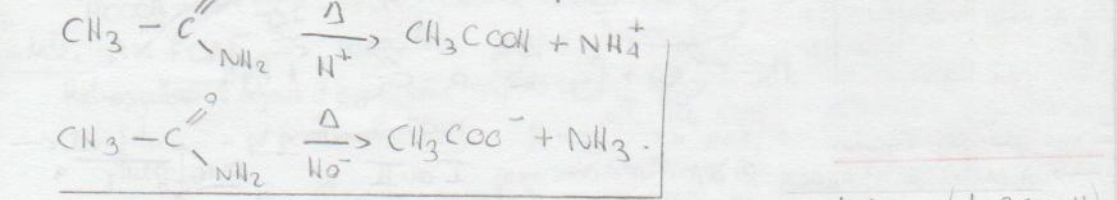 CH3 - C NH2 Δ H+ → CH3COOH + NH4+
CH3 - C O NH2 Δ HO- → CH3COO- + NH3.